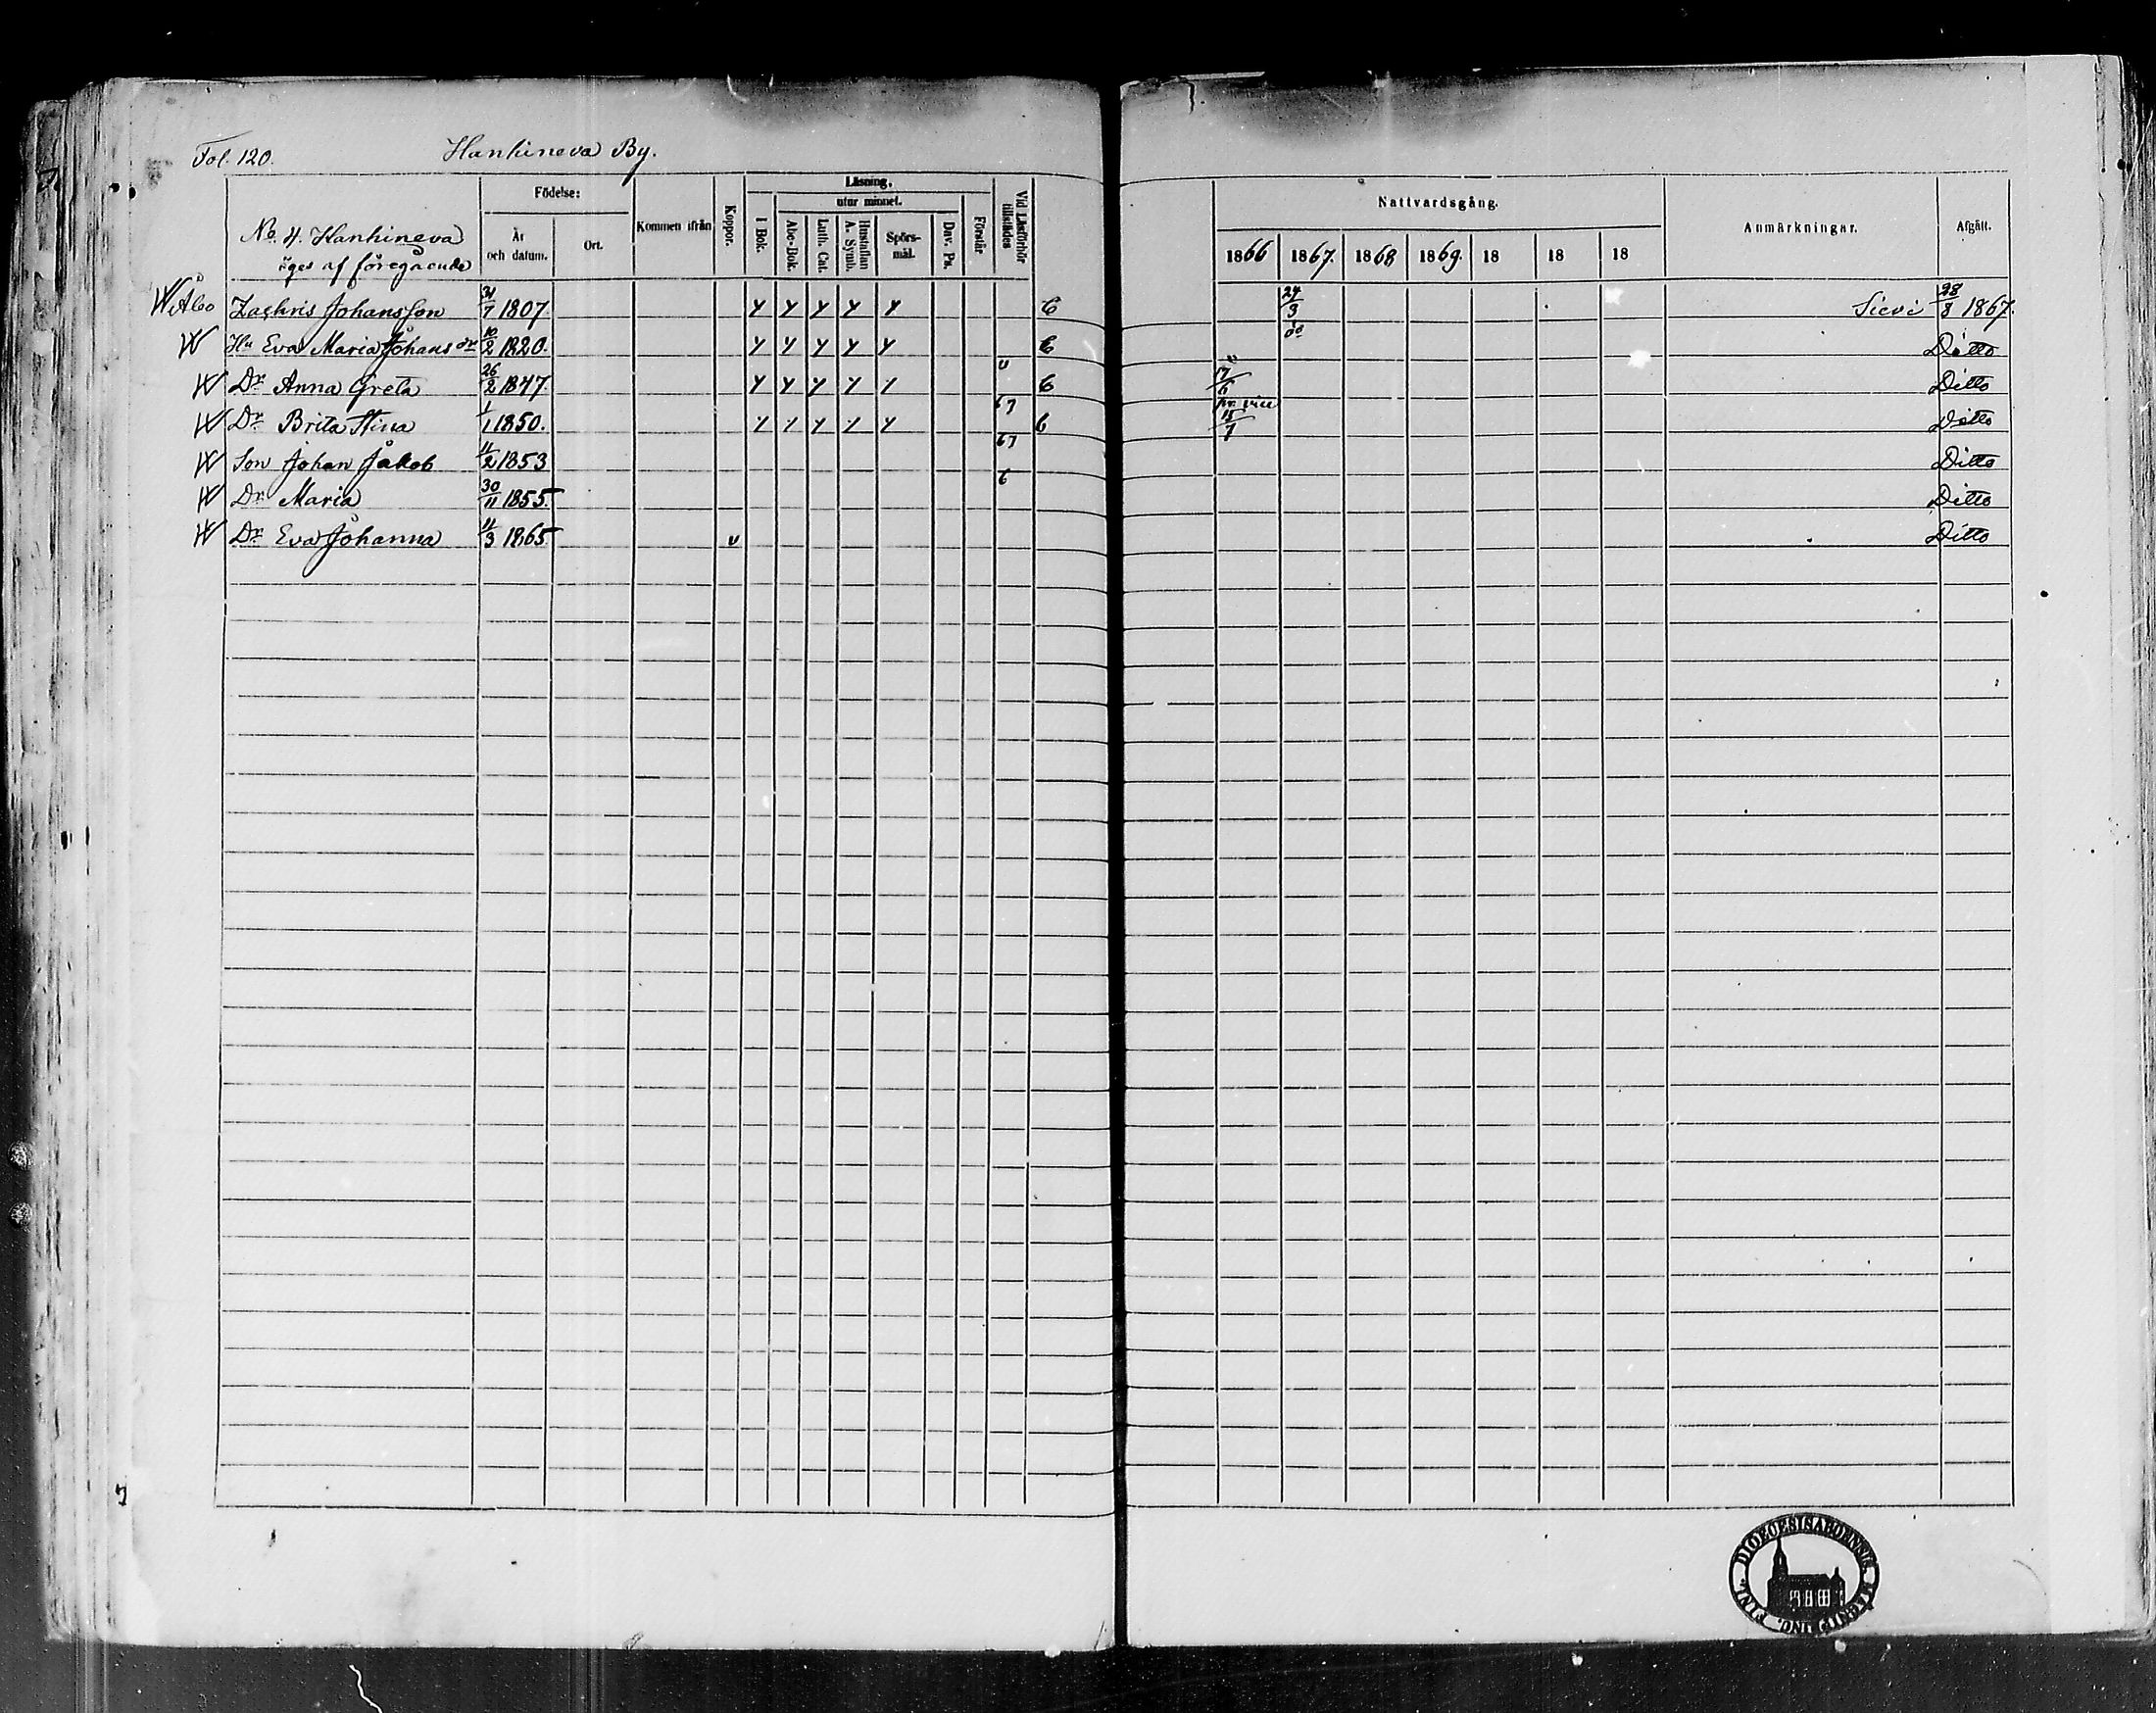 Fol. 120. Hanhineva By.
No. 4. Hanhineva
äges af föregående
Födelse:
År och datum.
Ort.
Kommen ifrån
Koppor.
Läsning.
utur minnet.
I Bok.
Abc-Bok.
Luth. Cat.
Hustaflan A. Symb.
Spörsmål.
Dav. Ps.
Förstår
Vid Läsförhör tillstädes
Nattvardsgång.
1866 1867. 1868 1869. 18 18 18
Anmärkningar.
Afgått.
Zachris Johansson 31/7 1807. 24/3 Sievi 28/8 1867.
Hu Eva Maria Johansdr 10/2 1820. Ditto
Dr Anna Greta 26/2 1847. 17/6 Ditto
Dr Brita Stina 1/1 1850. 67 pr. vice 15/7 Ditto
Son Johan Jakob 11/2 1853 67 Ditto
Dr Maria 30/11 1855. 6 Ditto
Dr Eva Johanna 11/3 1865. v Ditto